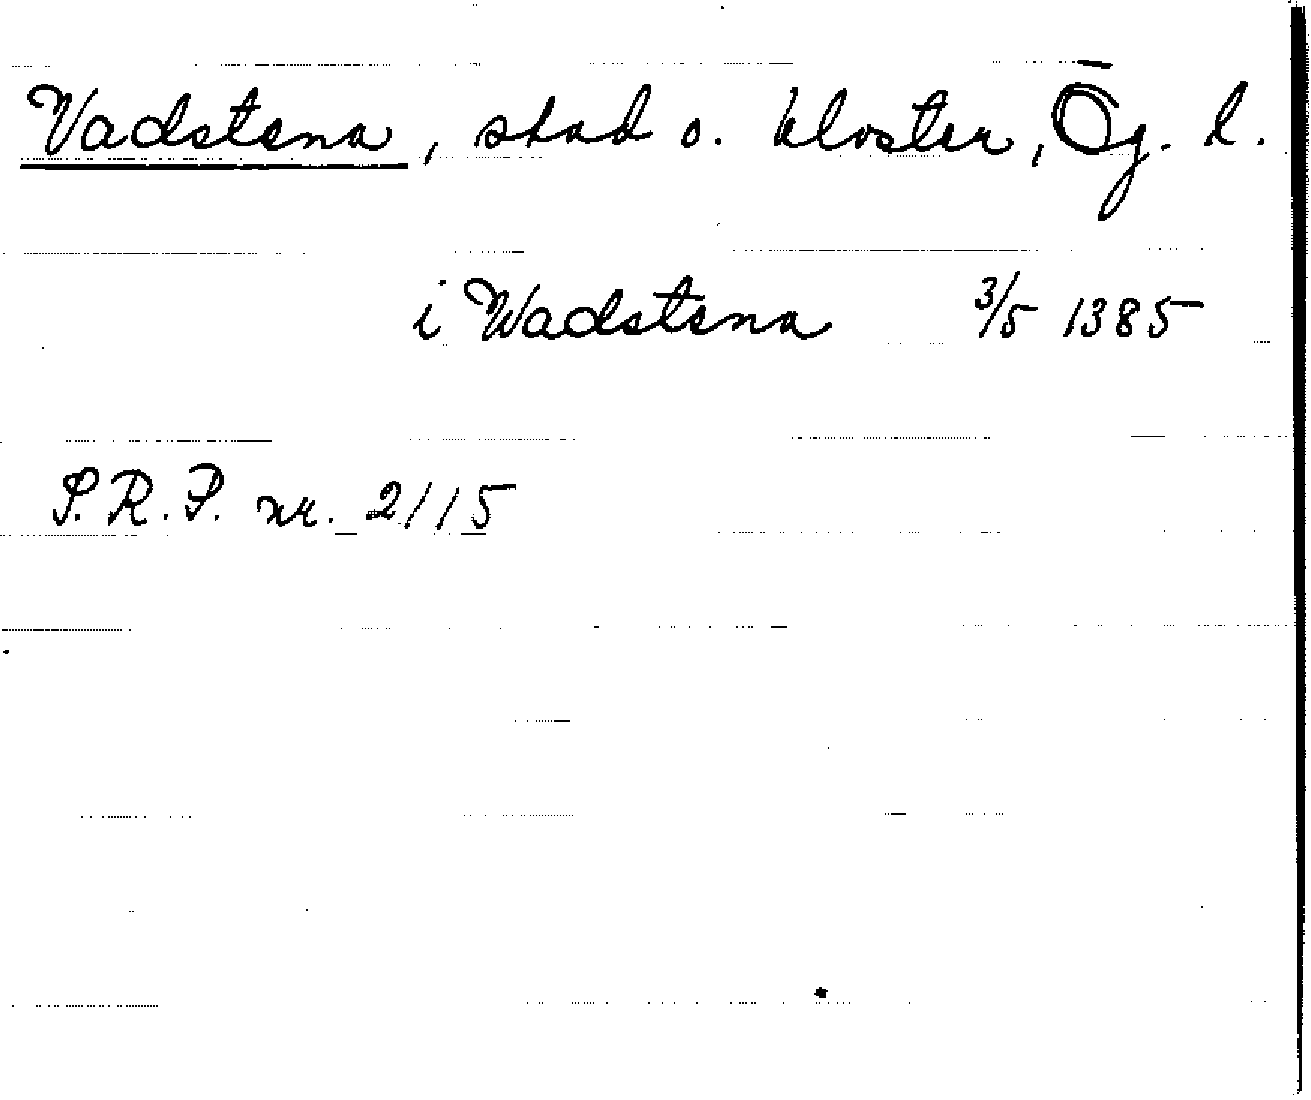 Vadstena, stad o. kloster, Ög. l.
i Wadstena 3/5 1385
S.R.P. nr. 2115